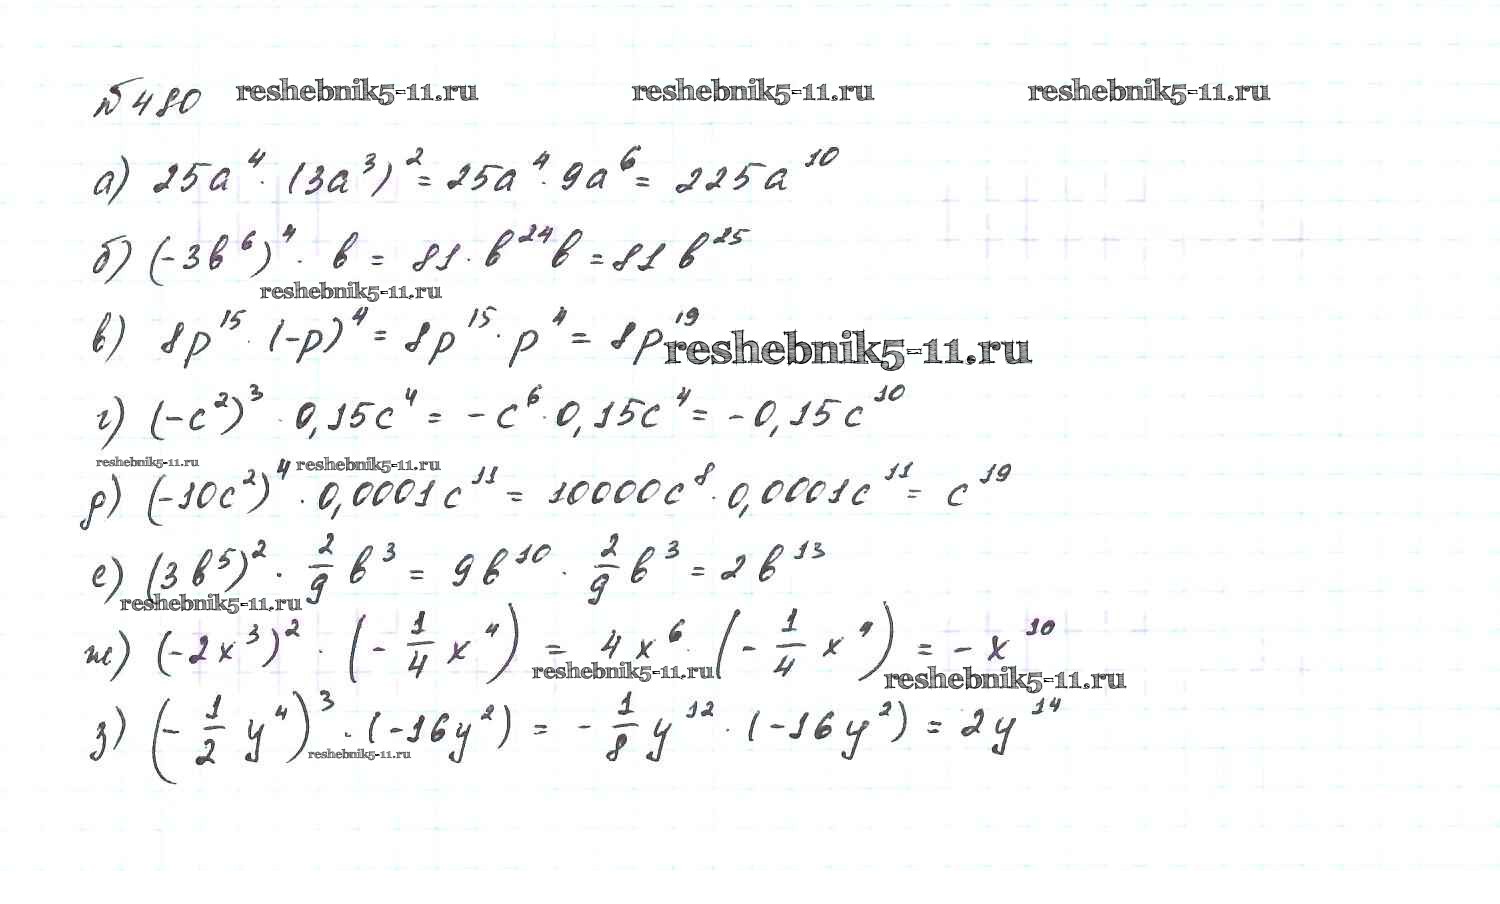 №480 reshebnik5-11.ru reshebnik5-11.ru reshebnik5-11.ru
а) 25a⁴ · (3a³)² = 25a⁴ · 9a⁶ = 225a¹⁰
б) (-3b⁶)⁴ · b = 81 · b²⁴b = 81b²⁵
reshebnik5-11.ru
в) 8p¹⁵ · (-p)⁴ = 8p¹⁵ · p⁴ = 8p¹⁹ reshebnik5-11.ru
г) (-c²)³ · 0,15c⁴ = -c⁶ · 0,15c⁴ = -0,15c¹⁰
reshebnik5-11.ru reshebnik5-11.ru
д) (-10c²)⁴ · 0,0001c¹¹ = 10000c⁸ · 0,0001c¹¹ = c¹⁹
е) (3b⁵)² · 2/9 b³ = 9b¹⁰ · 2/9 b³ = 2b¹³
reshebnik5-11.ru
ж) (-2x³)² · (-1/4 x⁴) = 4x⁶ · (-1/4 x⁴) = -x¹⁰
reshebnik5-11.ru reshebnik5-11.ru
з) (-1/2 y⁴)³ · (-16y²) = -1/8 y¹² · (-16y²) = 2y¹⁴
reshebnik5-11.ru